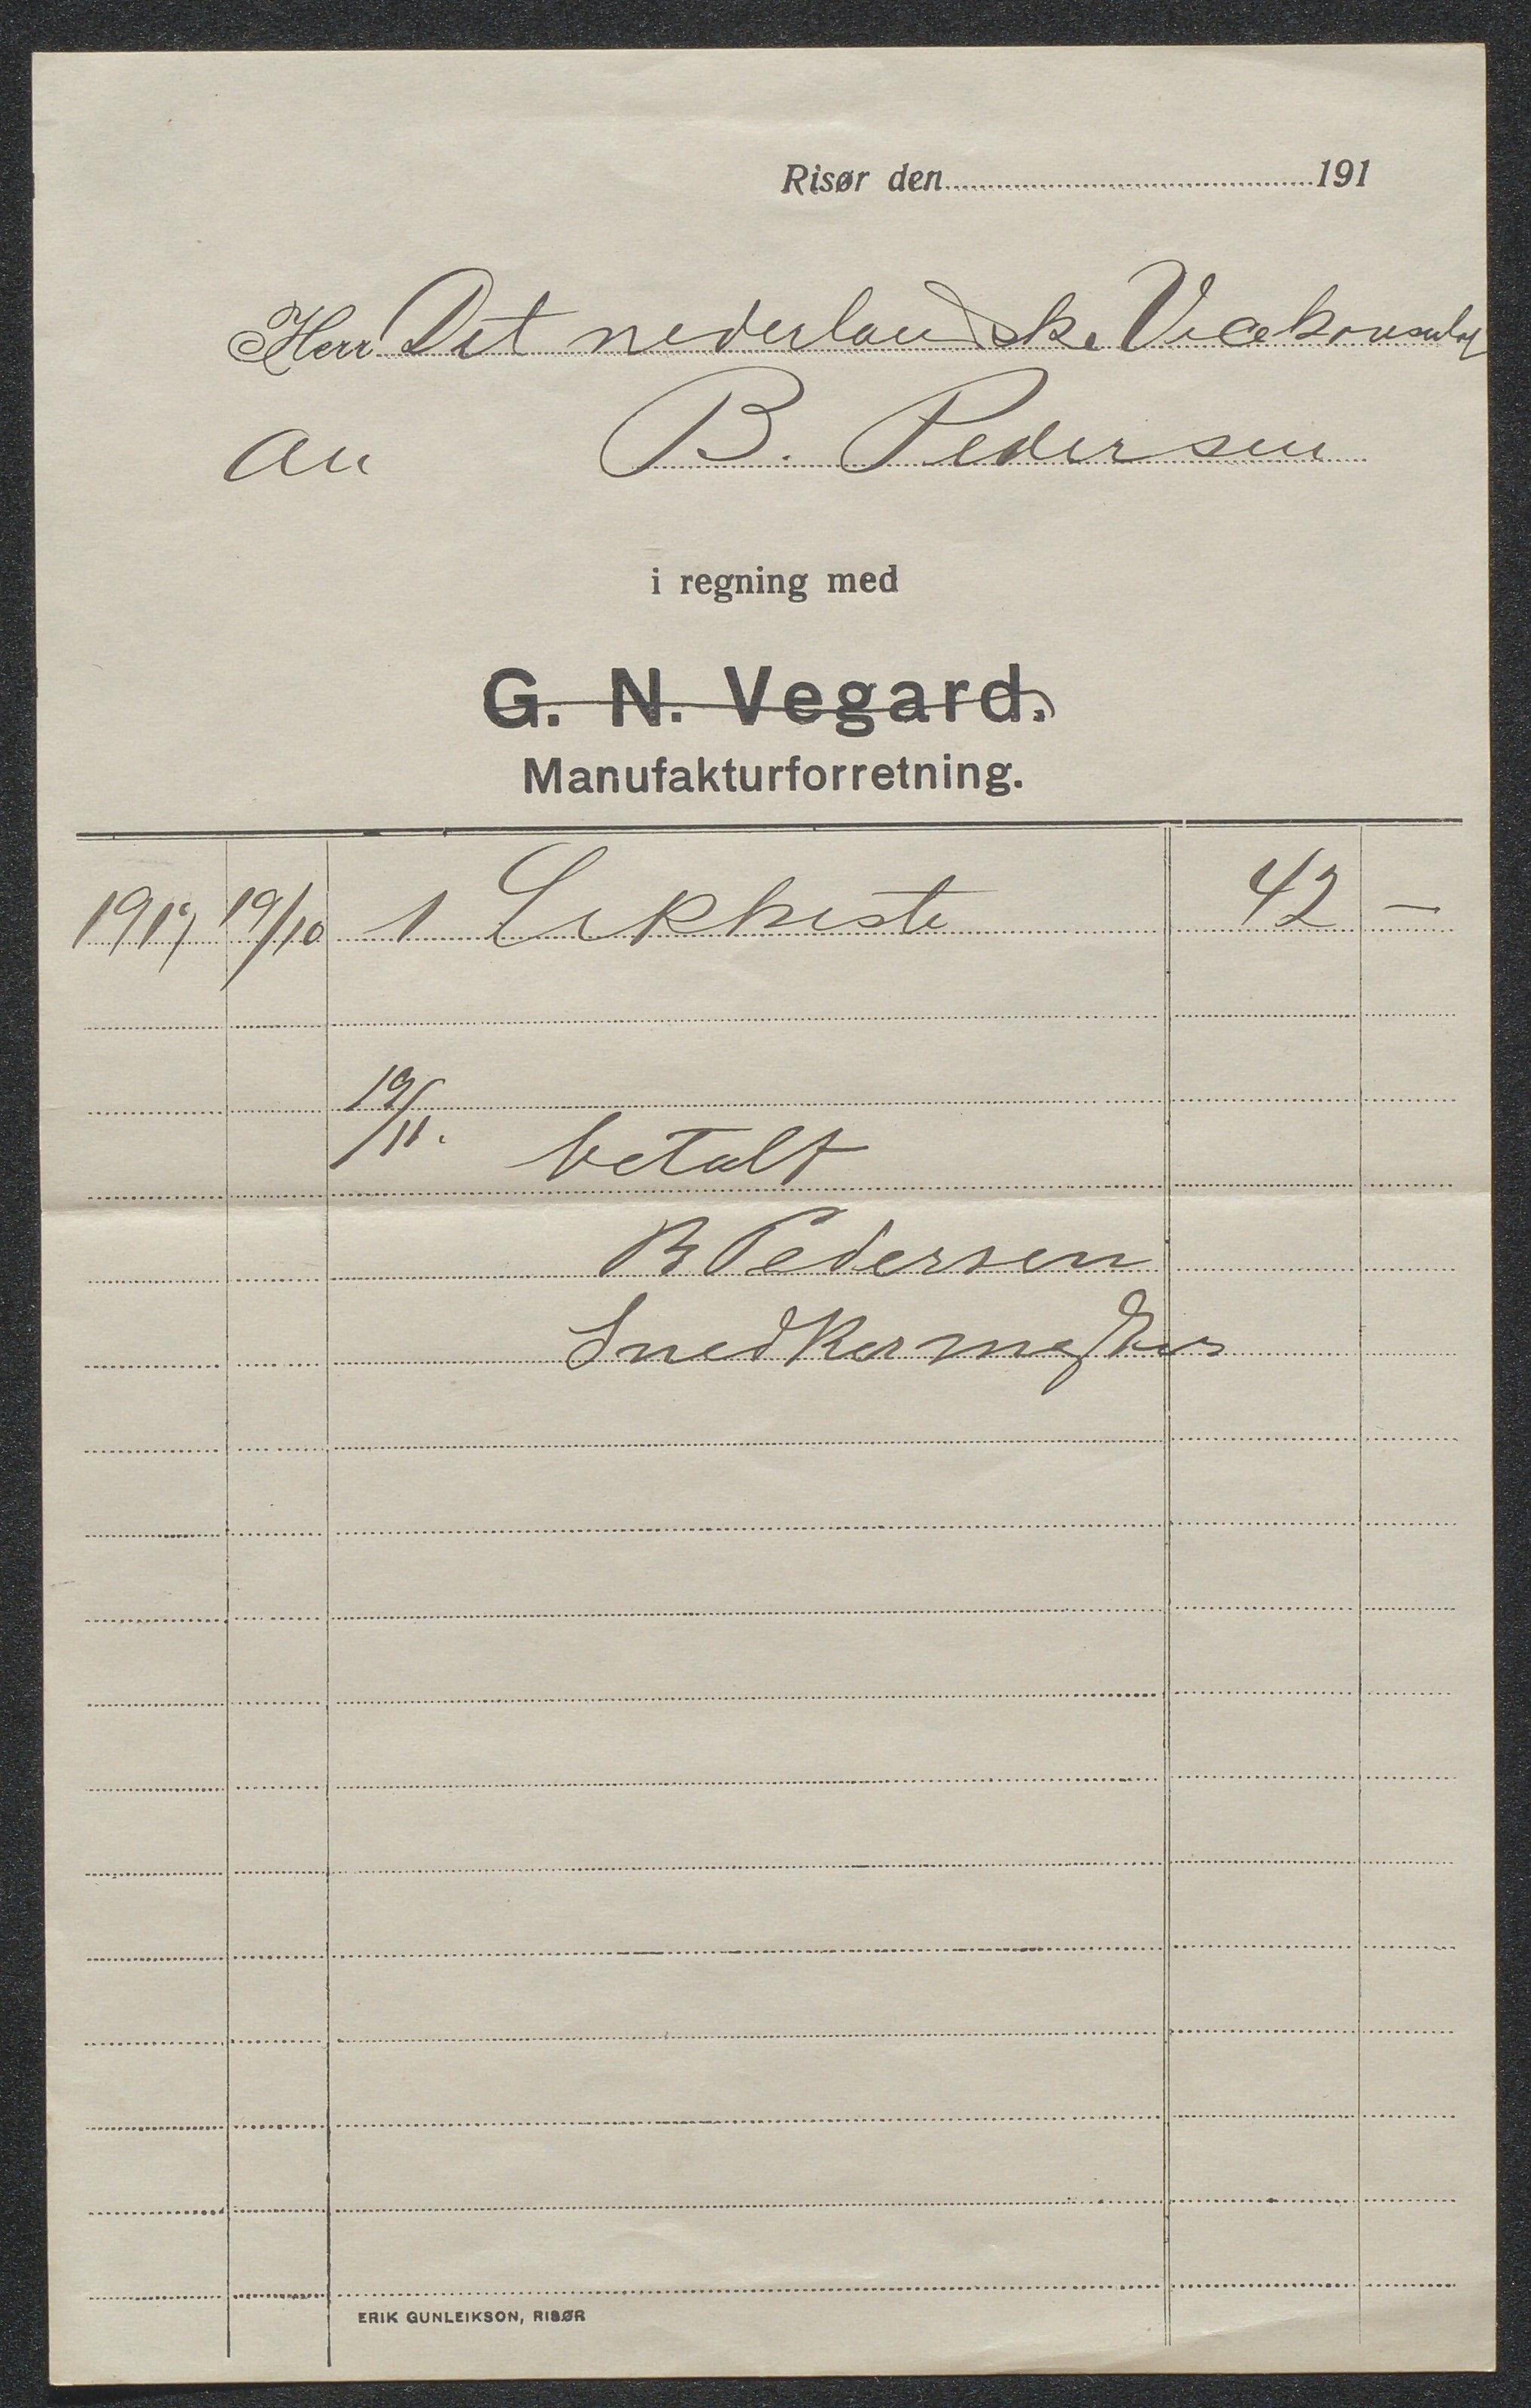 Risør den 191
Herr Det nederlandske Vicekonsulat
An B. Pedersen
i regning med
G. N. Vegard.
Manufakturforretning.
1919 19/10 1 Likkiste 42 —
19/11.
betalt
B Pedersen
Snedkermester
ERIK GUNLEIKSON, RISØR